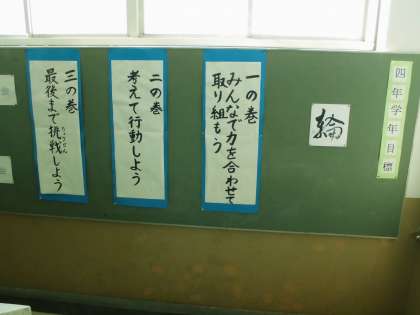 四年学年目標
綸
一の巻
みんなで力を合わせて
取り組もう
二の巻
考えて行動しよう
三の巻
最後まで挑戦しよう
ちょうせん